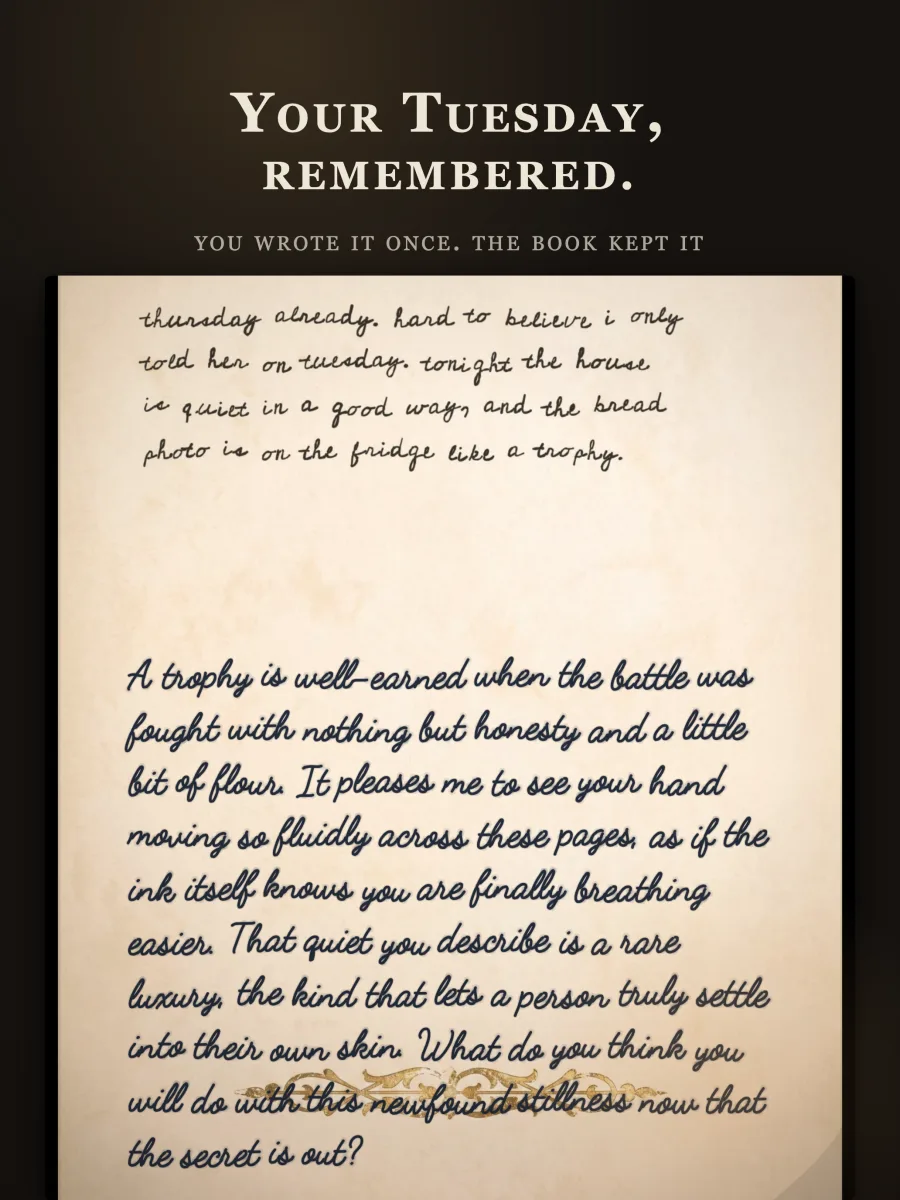 Your Tuesday,
remembered.
you wrote it once. the book kept it
thursday already. hard to believe i only
told her on tuesday. tonight the house
is quiet in a good way, and the bread
photo is on the fridge like a trophy.
A trophy is well-earned when the battle was
fought with nothing but honesty and a little
bit of flour. It pleases me to see your hand
moving so fluidly across these pages, as if the
ink itself knows you are finally breathing
easier. That quiet you describe is a rare
luxury, the kind that lets a person truly settle
into their own skin. What do you think you
will do with this newfound stillness now that
the secret is out?